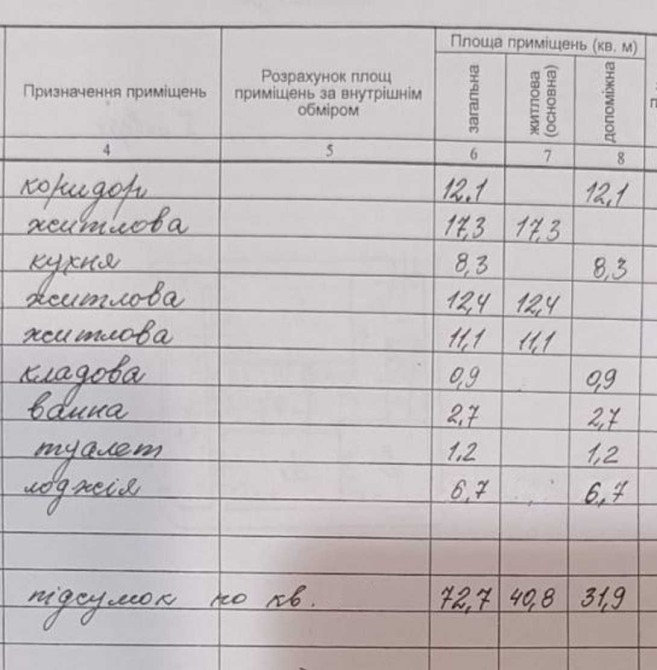 Площа приміщень (кв. м)
Призначення приміщень
Розрахунок площ
приміщень за внутрішнім
обміром
загальна
житлова
(основна)
допоміжна
4 5 6 7 8
коридор 12,1 12,1
житлова 17,3 17,3
кухня 8,3 8,3
житлова 12,4 12,4
житлова 11,1 11,1
кладова 0,9 0,9
ванна 2,7 2,7
туалет 1,2 1,2
лоджія 6,7 6,7
підсумок по кв. 72,7 40,8 31,9